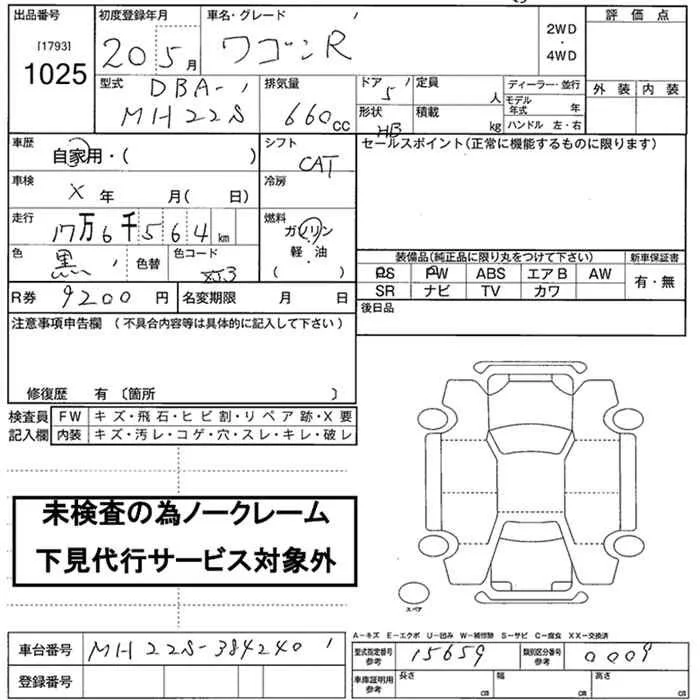 出品番号
[1793]
1025
初度登録年月
20 5月
車名・グレード
ワゴンR
2WD
・
4WD
評価点
外装 内装
型式
DBA-
MH22S
排気量
660cc
ドア 5
形状 HB
定員 人
積載 kg
ディーラー・並行
モデル年式 年
ハンドル 左・右
車歴
自家用・( )
シフト
CAT
セールスポイント(正常に機能するものに限ります)
車検
X年 月( 日)
冷房
走行
17万6千564km
燃料
ガソリン
軽・油
( )
色
黒 色替
色コード
ZJ3
装備品(純正品に限り丸をつけて下さい)
新車保証書
PS PW ABS エアB AW
有・無
SR ナビ TV カワ
R券 9200円
名変期限 月 日
後日品
注意事項申告欄(不具合内容等は具体的に記入して下さい)
修復歴 有 〔箇所 〕
検査員
記入欄
FW キズ・飛石・ヒビ割・リペア跡・X要
内装 キズ・汚レ・コゲ・穴・スレ・キレ・破レ
未検査の為ノークレーム
下見代行サービス対象外
スペア
A-キズ E-エクボ U-凹み W-補修跡 S-サビ C-腐食 XX-交換済
車台番号 MH22S-384240
型式指定番号
参考
15659
類別区分番号
参考
0009
登録番号
車庫証明用
参考
長さ cm
幅 cm
高さ cm